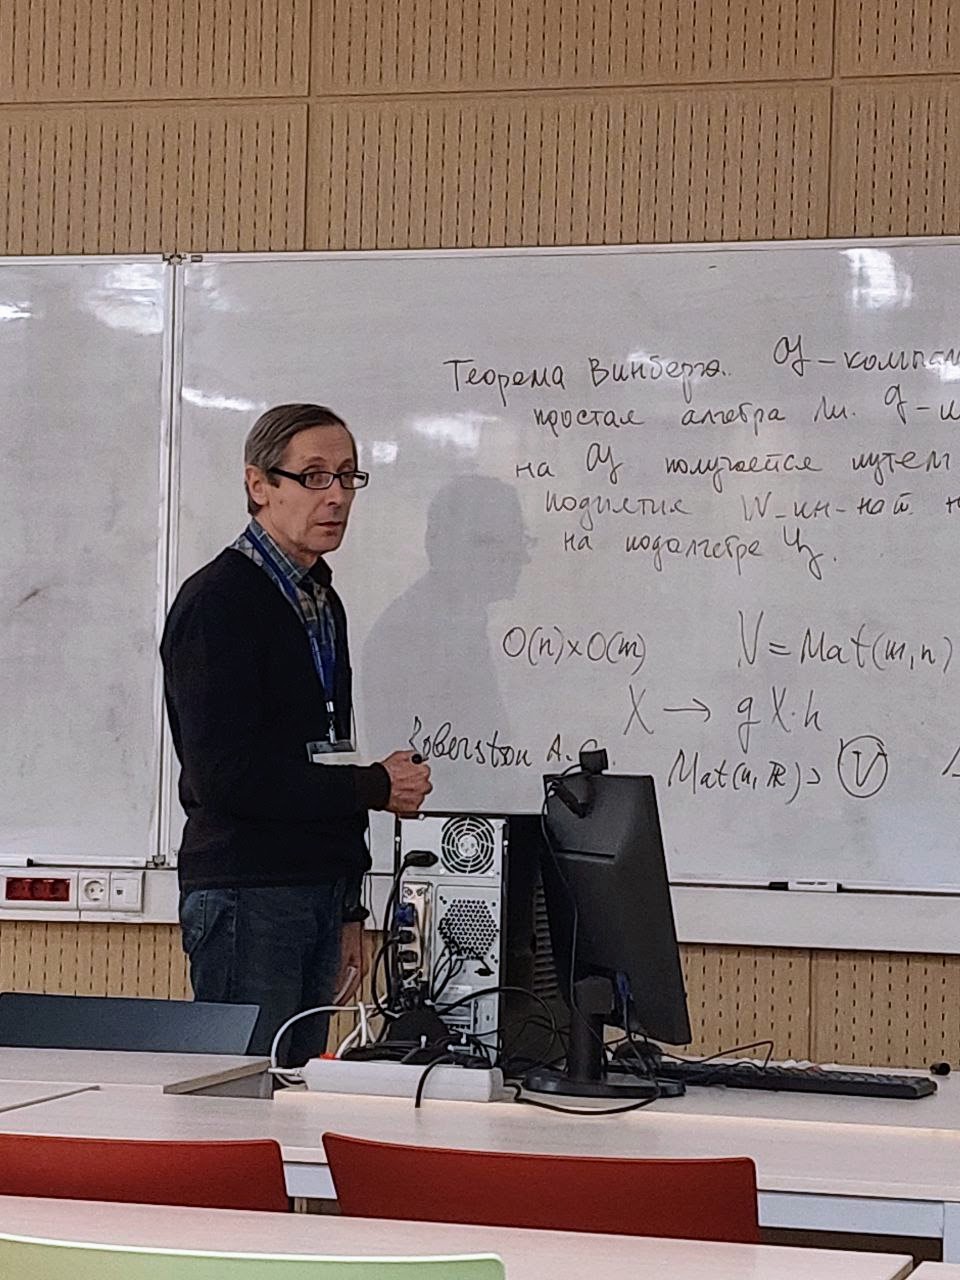 Теорема Винберга. 𝔤 – компак
простая алгебра Ли. g –
на 𝔤 получается путем
поднятия W-ин-нат.
на подалгебре 𝔥.
O(n)×O(m)
V = Mat(m,n)
X → g X·h
A.
Mat(n,ℝ) ⊃ V